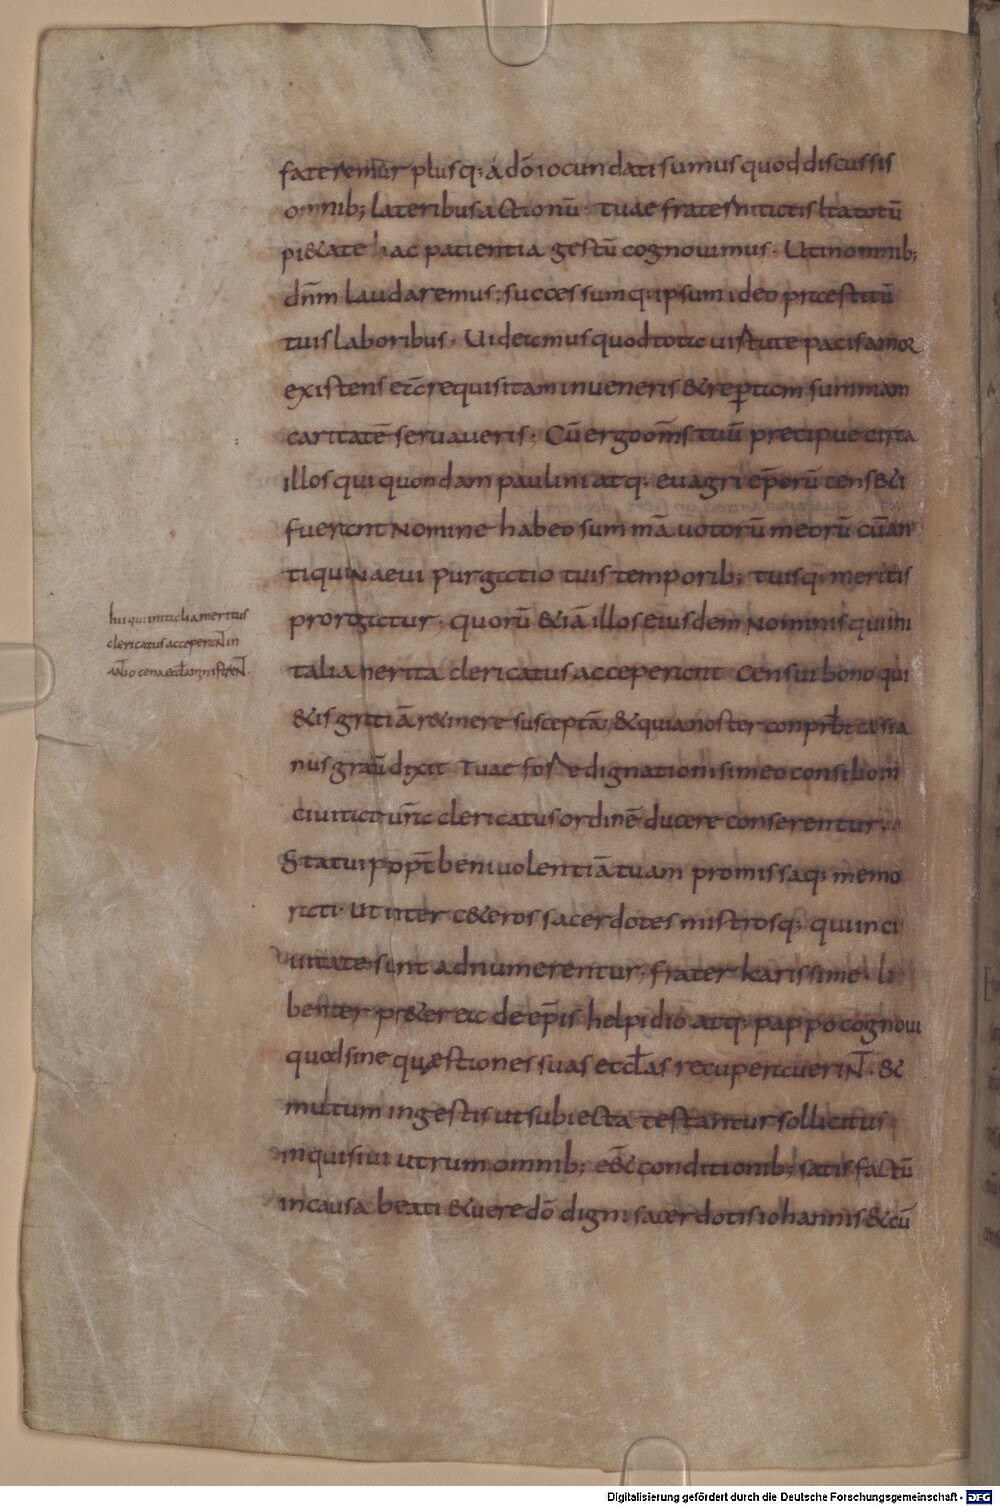 fateremur plusq; a dō iocundati sumus quod discussis
omnib; lateribus actionū. tuae fraternitatis ita totū
pi&ate hac patientia gestū cognovimus. Ut in omnib;
dnm laudaremus; successumq; ipsum ideo prestitū
tuis laboribus. Videamus quod tota virtute pacis amor
existens et requisitam inveneris & repertam summam
caritatē servaveris. Cū ergo oms tuū precipue circa
illos qui quondam paulini atq; evagri eporū cens&i
fuerant Nomine habeo summā votorū meorū cū an
tiqui Naevi purgatio tuis temporib; tuisq; meritis
prorogatur. quorū &iā illos eiusdem Nominis qui in i
talia nerita clericatus acceperant Censui bono qui
&is gratiā r&inere susceptā. & quia noster conprbt casia
nus graū dixit Tuae fore dignationis i meo consilio in
civitat urā clericatus ordinē ducere conserentur.
Statui pp benivolentiā tuam promissaq; memo
rati. Ut inter c&eros sacerdotes nistrosq; qui in ci
vitate sint adnumerentur. frater karissime. li
benter pr&er ea de epis helpidio atq; pappo cognovi
quod sine quæstiones suas eccłas recuperaverint. &
multum in gestis ut subiecta testantur sollicitus
inquisivi utrum omnib; e& conditionib; satisfactū
in causa beati & vere dō digni sacerdotis iohannis & cū
hii qui in italia meritus
clericatus acceperant in